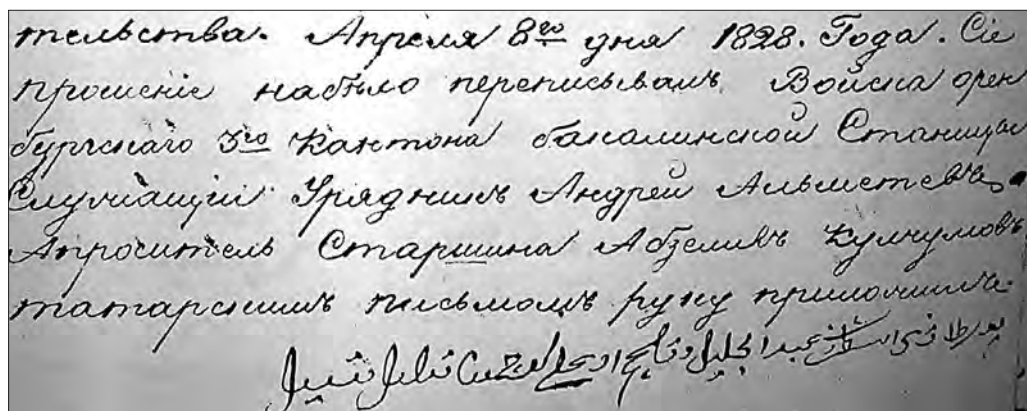 тельства. Апреля 8го дня 1828. Года. Сіе
прошеніе набѣло переписывалъ Войска орен
бургскаго 3го Кантона бакалинской Станицы
Служащій Урядникъ Андрей Альметевъ.
Апроситель Старшина Абзелилъ Кулчумовъ
татарскимъ письмомъ руку приложилъ.